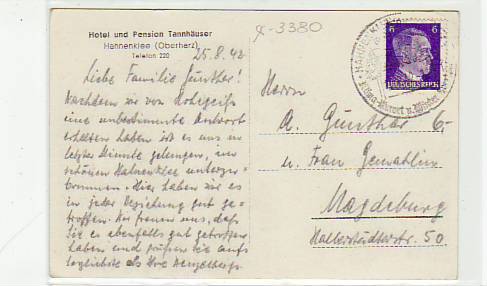 Hotel und Pension Tannhäuser
Hahnenklee (Oberharz)
Telefon 220
x-3380
25.8.42
Liebe Familie Günther!
Nachdem wir von
eine unbestimmte Antwort
erhalten haben ist es uns in
letzter Minute gelungen, im
schönen Hahnenklee unterzu-
kommen. Hier haben wir es
in jeder Beziehung gut ge-
troffen. Wir freuen uns, daß
Sie es ebenfalls gut getroffen
haben und grüßen Sie aufs
herzlichste als Ihre
6 6
DEUTSCHES REICH
Herrn
A. Günther
u. Frau Gemahlin
Magdeburg
Halberstädterstr. 50